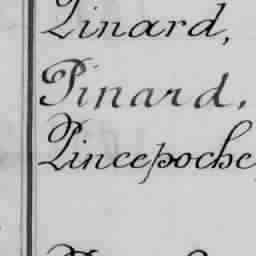 Pinard,
Pinard,
Pincepoche